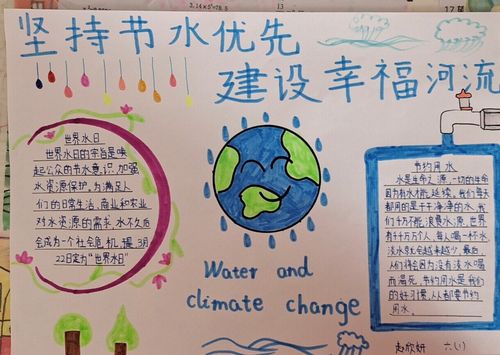 坚持节水优先
建设幸福河流
世界水日
世界水日的宗旨是唤
起公众的节水意识,加强
水资源保护,为满足人
们的日常生活,商业和农业
对水资源的需求,水不久后
会成为一个社会危机,把3月
22日定为"世界水日"
节约用水
水是生命之源,一切的生命
因为有水才能延续,我们每天
都用的是干干净净的水,我
们千万不能浪费水源,世界
有千千万万个人,每人喝一杯水
淡水就会越来越少,最后
人们将会因为没有淡水喝
而渴死,节约用水是我们
的好习惯,人人都要节约
用水。
Water and
climate change
赵欣妍 六(1)